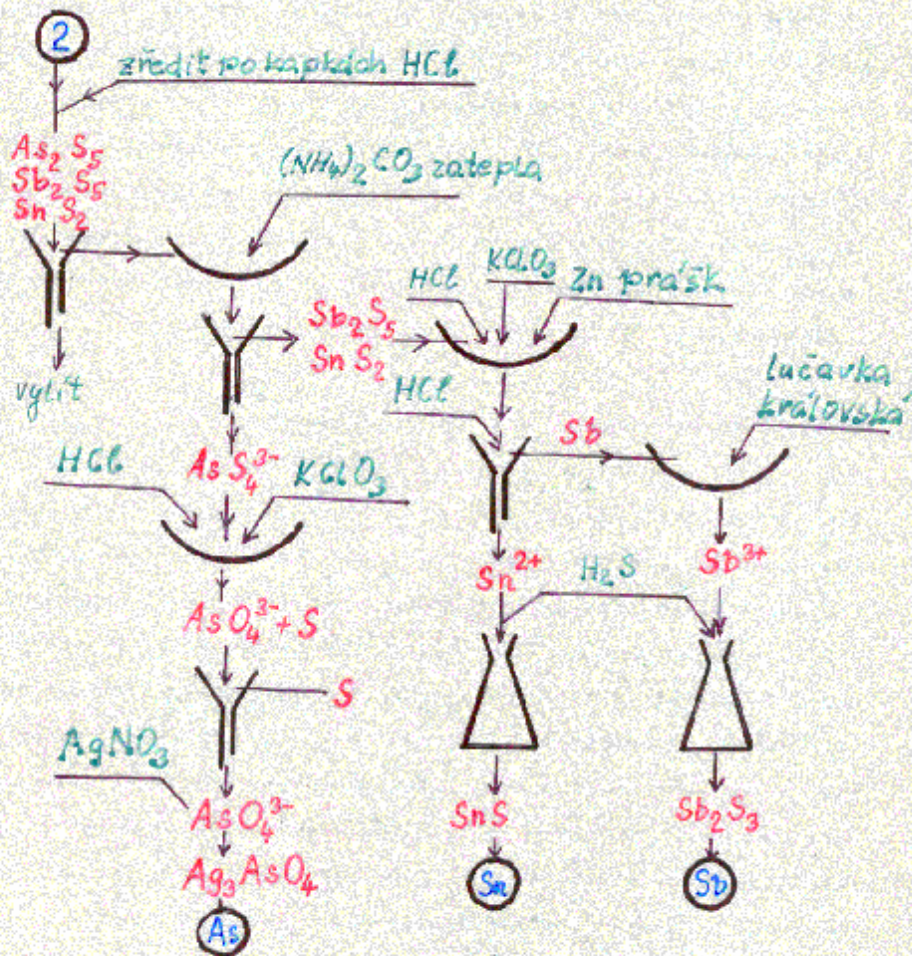 2
zředit po kapkách HCl
As₂S₅
Sb₂S₅
SnS₂
(NH₄)₂CO₃ zatepla
vylít
Sb₂S₅
SnS₂
HCl
KClO₃
Zn prášk
HCl
Sb
lučavka
královská
AsS₄³⁻
HCl
KClO₃
AsO₄³⁻ + S
S
Sn²⁺
H₂S
Sb³⁺
AgNO₃
AsO₄³⁻
Ag₃AsO₄
As
SnS
Sn
Sb₂S₃
Sb